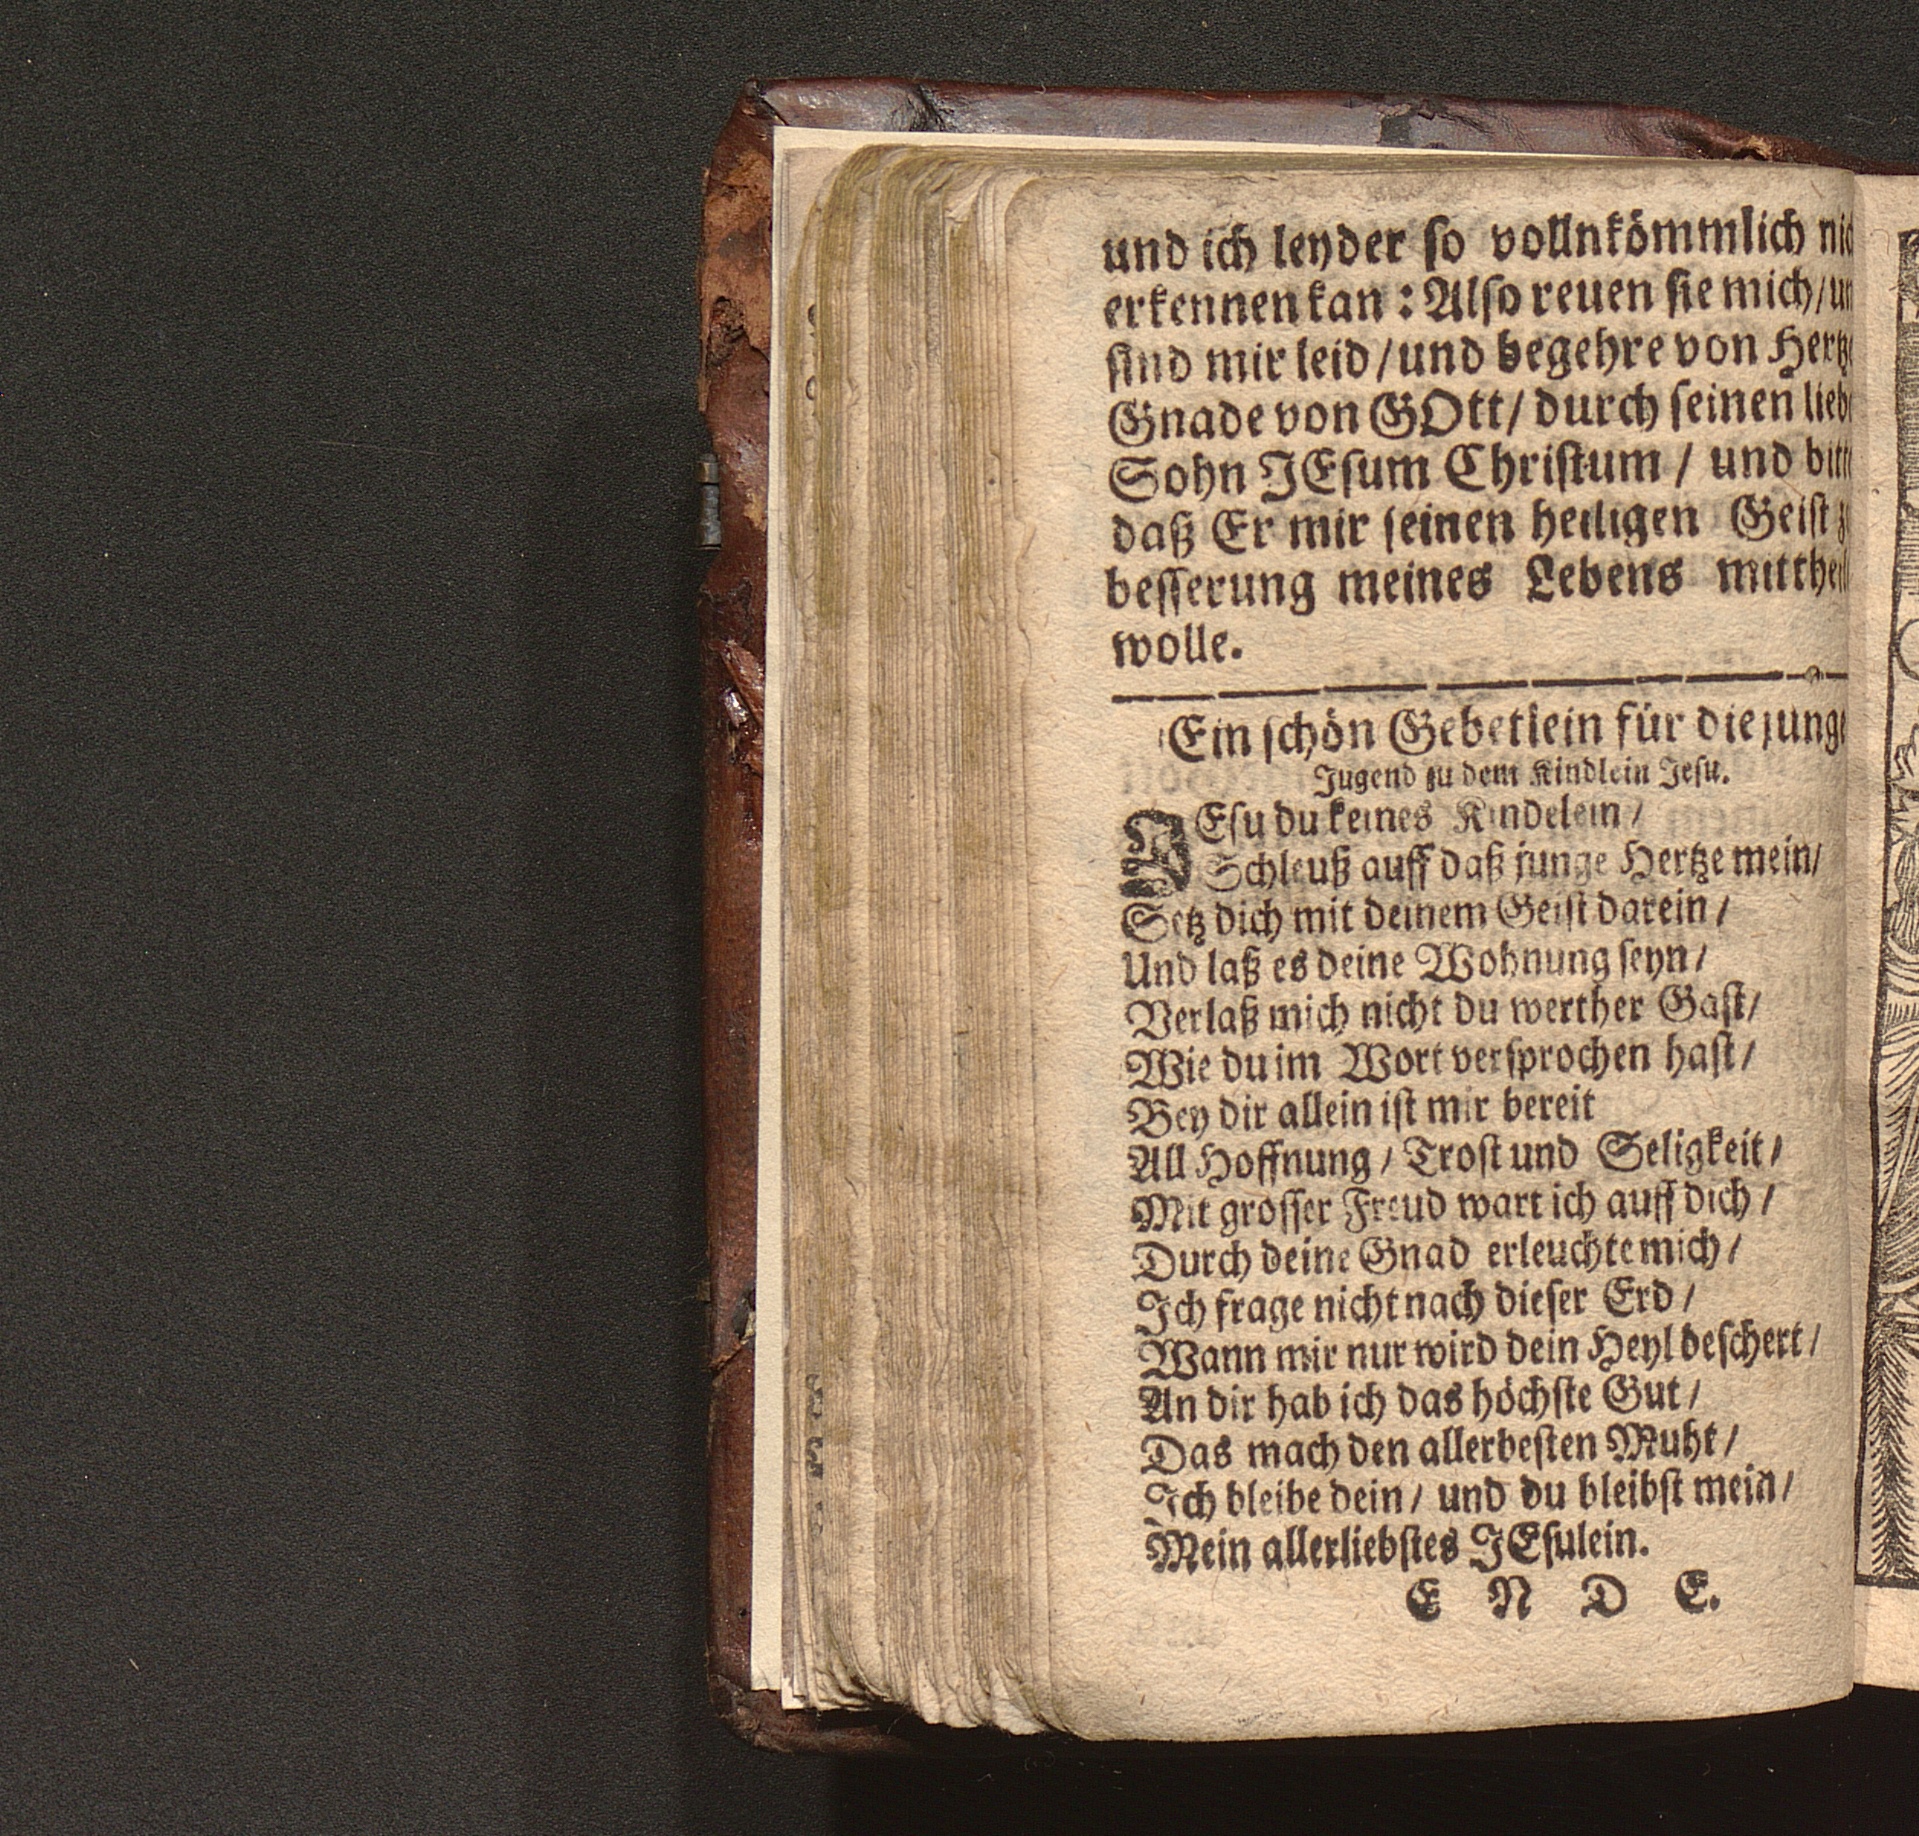 und ich leyder so vollnkömmlich
erkennen kan: Also reuen sie mich/
sind mir leid/ und begehre von
Gnade von GOtt/ durch seinen
Sohn JEsum Christum/ und
daß Er mir seinen heiligen Geist
besserung meines Lebens
wolle.
Ein schön Gebetlein für die junge
Jugend zu dem Kindlein Jesu.
JEsu du keines Kindelein/
Schleuß auff daß junge Hertze mein/
Setz dich mit deinem Geist darein/
Und laß es deine Wohnung seyn/
Verlaß mich nicht du werther Gast/
Wie du im Wort versprochen hast/
Bey dir allein ist mir bereit
All Hoffnung/ Trost und Seligkeit/
Mit grosser Freud wart ich auff dich/
Durch deine Gnad erleuchte mich/
Ich frage nicht nach dieser Erd/
Wann mir nur wird dein Heyl beschert/
An dir hab ich das höchste Gut/
Das mach den allerbesten Muht/
Ich bleibe dein/ und du bleibst mein/
Mein allerliebstes JEsulein.
E N D E.